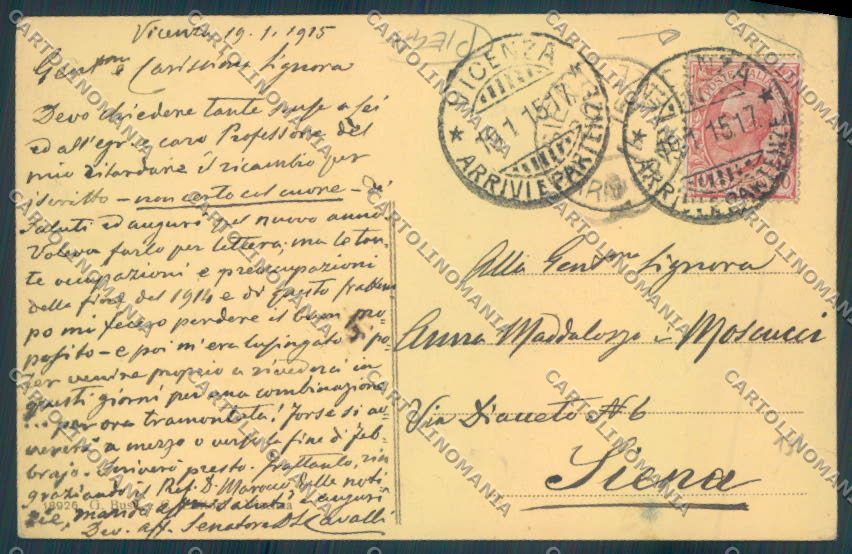 Vicenza 19.1.1915
Gent.ma e Carissima Signora
Devo chiedere tante scuse a Lei
ed all'egr. caro Professore del
mio ritardare il ricambio per
iscritto - non certo col cuore - di
saluti ed auguri pel nuovo anno.
Voleva farlo per lettera, ma le tan-
te occupazioni e preoccupazioni
della fine del 1914 e di questo frattem
po mi fecero perdere il buon pro-
posito - e poi m'era lusingato di po-
ter venire proprio a rivederci in
questi giorni per una combinazione
... per ora tramontata! Forse si av-
vererà a mezzo o verso la fine di feb-
brajo. Scriverò presto. Frattanto, rin
graziando il Prof. D. Marocco delle noti
zie, manda saluti e auguri
Dev. aff. Senatore Cavalli
18926 G.
VICENZA
19.1.15.17
ARRIVI E PARTENZE
VICENZA
19.1.15.17
ARRIVI E PARTENZE
POSTE ITALIANE
Alla Gent.ma Signora
Anna Maddalozzo - Moscucci
Via Diaceto N. 6
Siena
CARTOLINOMANIA